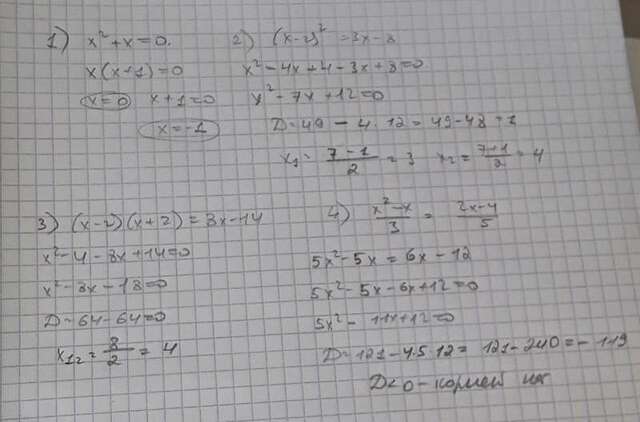 1) x² + x = 0.
x(x+1) = 0
x=0 x+1=0
x=-1
2) (x-2)² = 3x-8
x² - 4x + 4 - 3x + 8 = 0
x² - 7x + 12 = 0
D = 49 - 4·12 = 49-48 = 1
x₁ = (7-1)/2 = 3 x₂ = (7+1)/2 = 4
3) (x-2)(x+2) = 8x-14
x² - 4 - 8x + 14 = 0
x² - 8x - 18 = 0
D = 64-64 = 0
x₁₂ = 8/2 = 4
4) (x²-x)/3 = (2x-4)/5
5x² - 5x = 6x - 12
5x² - 5x - 6x + 12 = 0
5x² - 11x + 12 = 0
D = 121 - 4·5·12 = 121 - 240 = -119
D<0 - корней нет